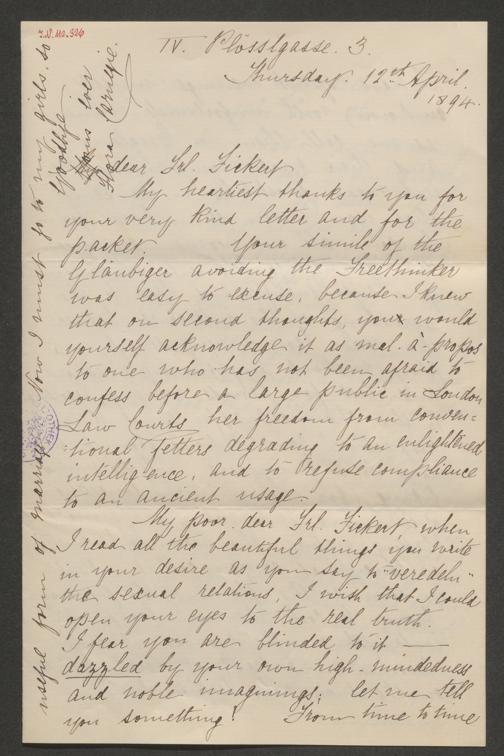 I.N. 110.326
IV. Plösslgasse. 3.
Thursday. 12th April.
1894.
dear Frl. Fickert
My heartiest thanks to you for
your very kind letter and for the
packet. Your simile of the
Gläubiger avoiding the Freethinker
was easy to excuse, because I knew
that on second thoughts, you would
yourself acknowledge it as mal-à-propos
to one who has not been afraid to
confess before a large public in London
Law Courts her freedom from conven-
-tional fetters degrading to an enlightened
intelligence, and to refuse compliance
to an ancient usage.
My poor dear Frl. Fickert, when
I read all the beautiful things you write
in your desire as you say to "veredeln"
the sexual relations, I wish that I could
open your eyes to the real truth.
I fear you are blinded to it —
dazzled by your own high-mindedness
and noble imaginings; let me tell
you something! From time to time
useful form of marriage. Now I must go to my girls, so
Goodbye
Yours ever
Carnegie.